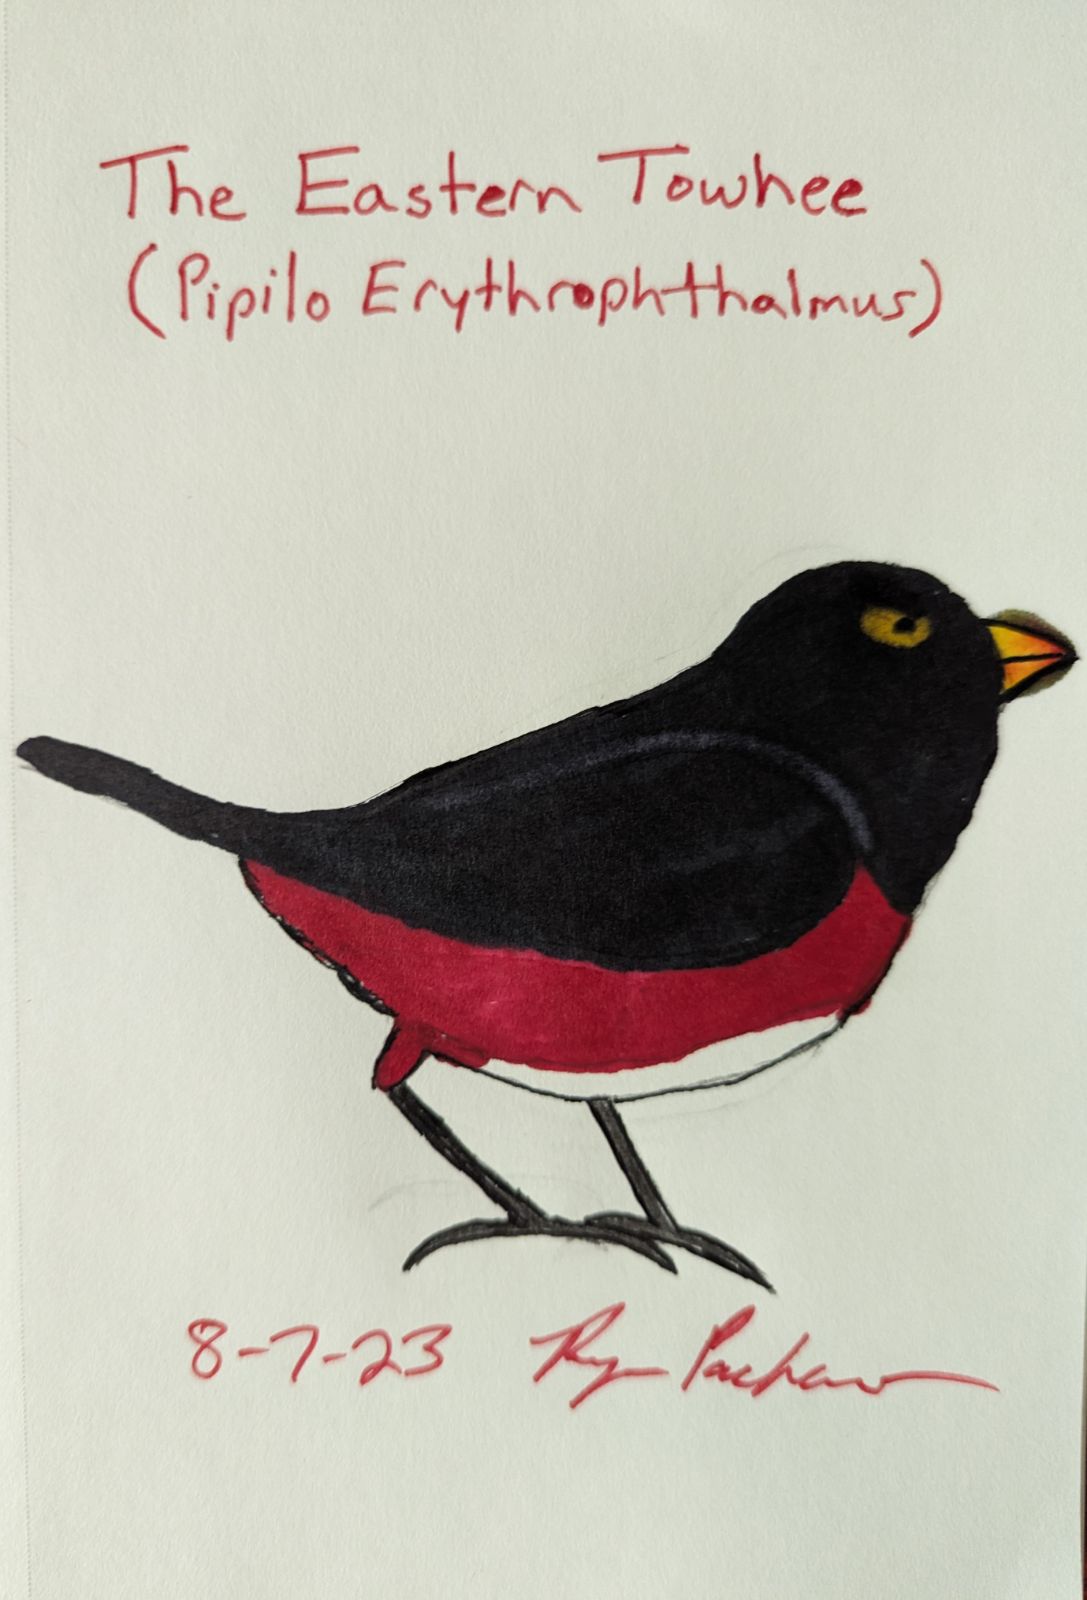 The Eastern Towhee
(Pipilo Erythrophthalmus)
8-7-23 Ryan